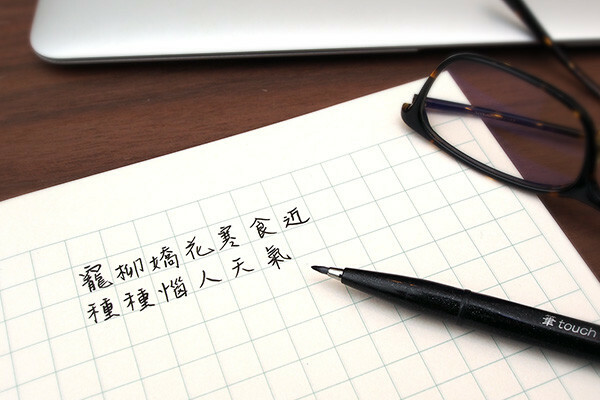 寵柳嬌花寒食近
種種惱人天氣
筆touch